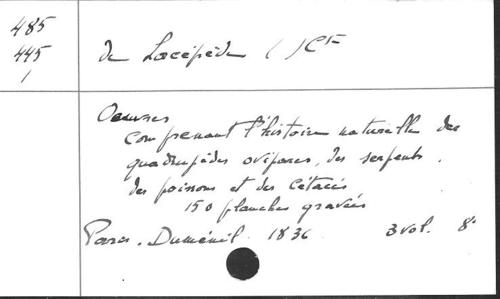 485
445
1
de Lacépède ( ) Cte
Oeuvres
comprenant l'histoire naturelle des
quadrupèdes ovipares, des serpents,
des poissons et des cétacés
150 planches gravées
Paris. Duménil. 1836 3 vol. 8°